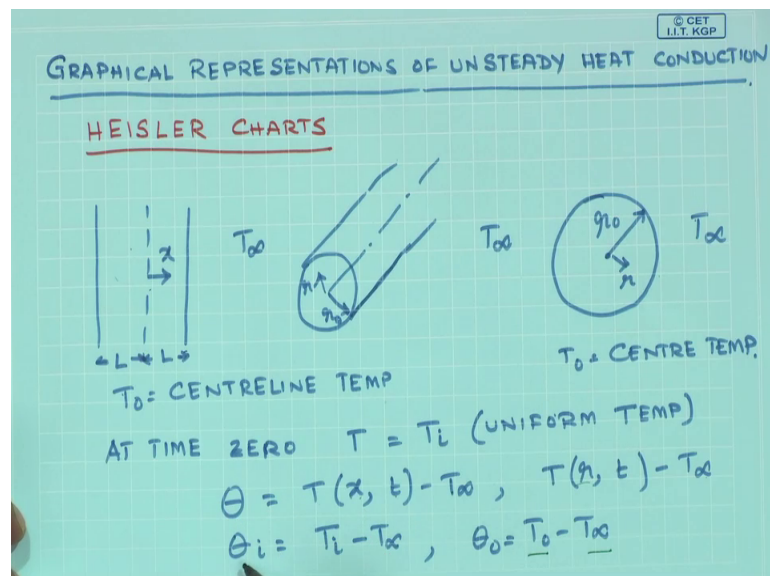 © CET
I.I.T. KGP
GRAPHICAL REPRESENTATIONS OF UNSTEADY HEAT CONDUCTION.
HEISLER CHARTS
x T∞ r r₀ T∞ r₀ r T∞
L L
T₀ = CENTRELINE TEMP
T₀ = CENTRE TEMP.
AT TIME ZERO T = Ti (UNIFORM TEMP)
θ = T(x, t) - T∞ , T(r, t) - T∞
θi = Ti - T∞ , θ₀ = T₀ - T∞